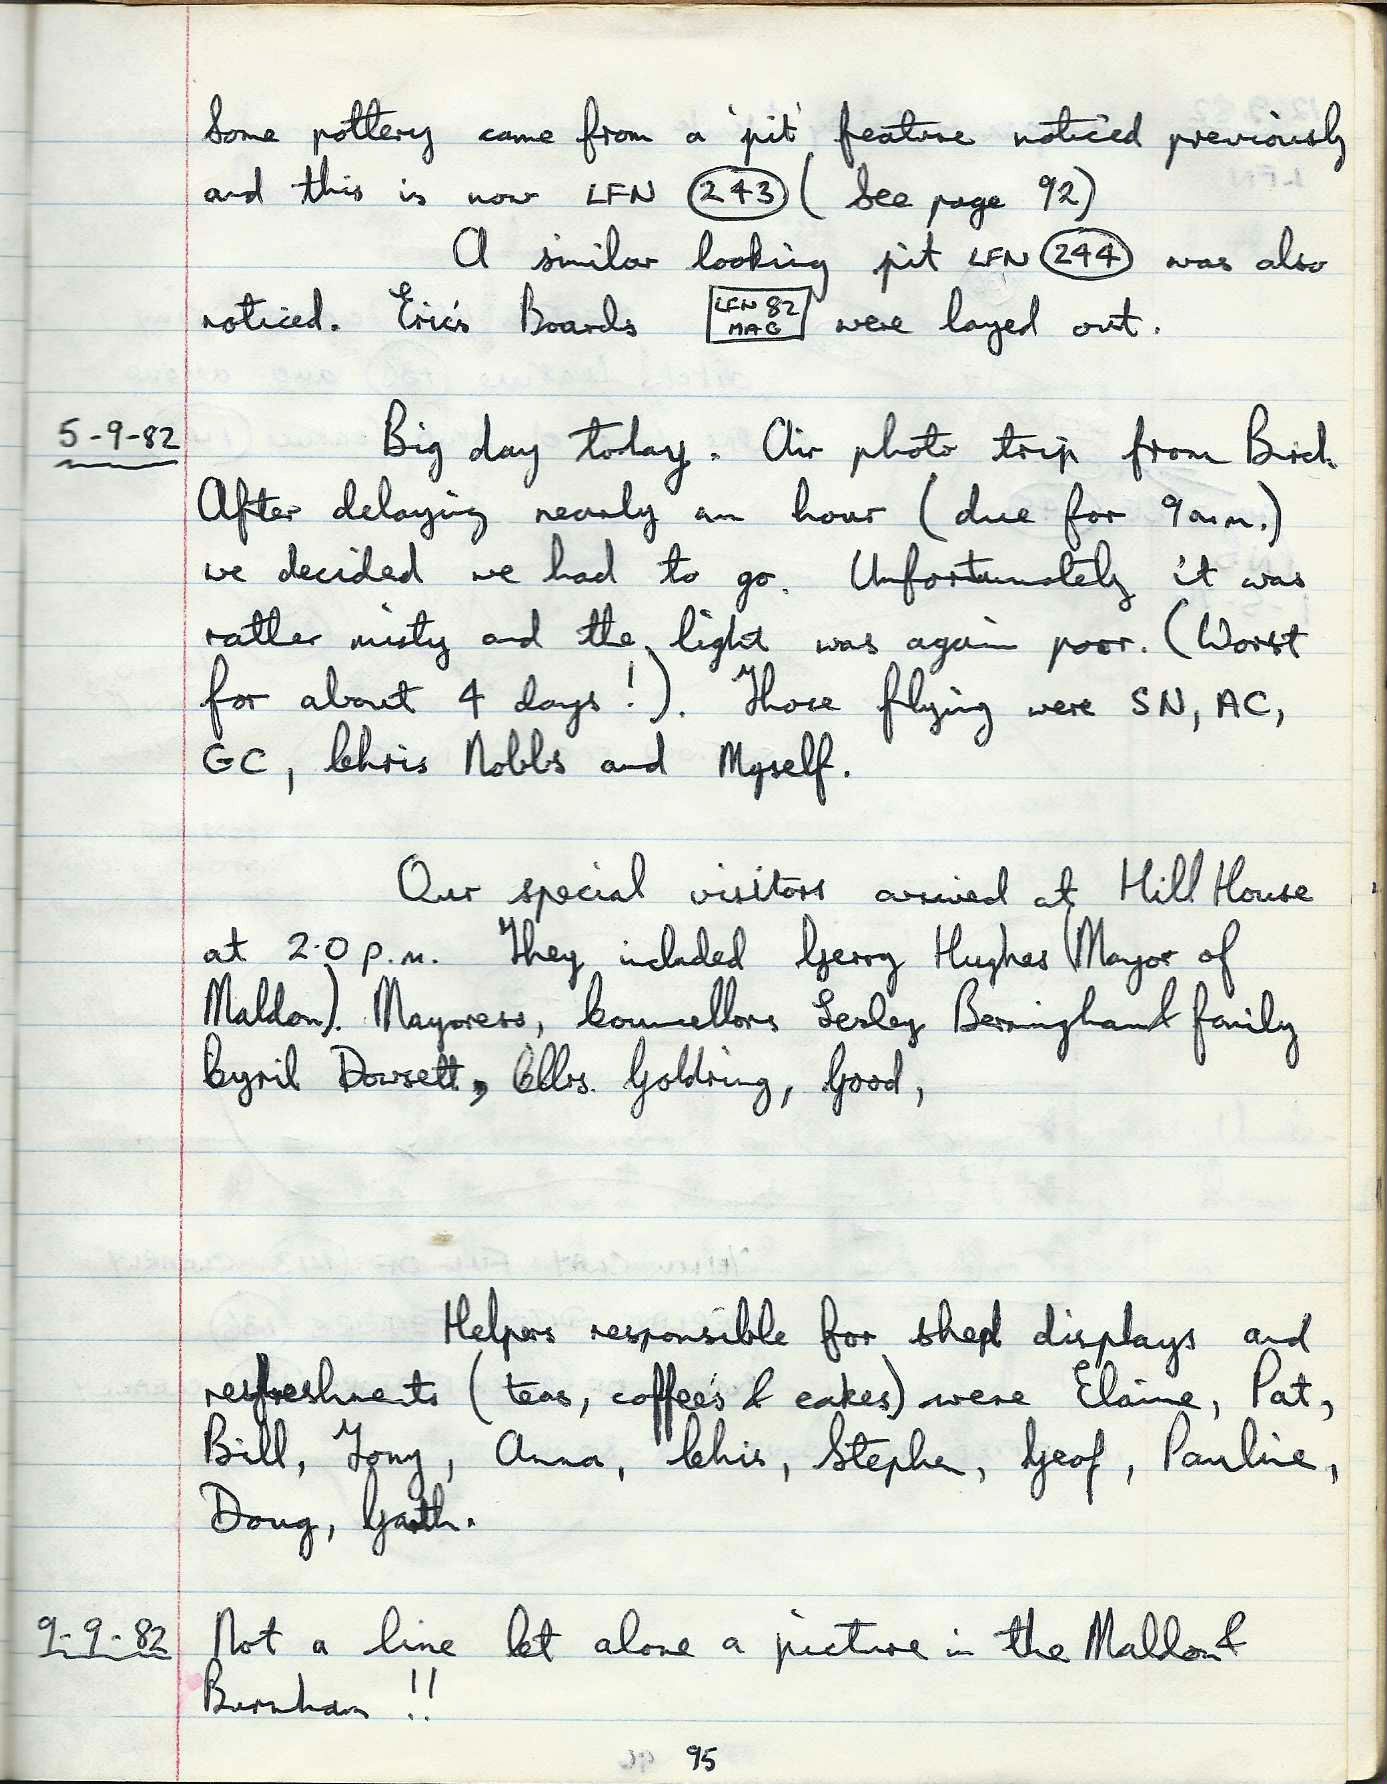 Some pottery came from a 'pit' feature noticed previously
and this is now LFN 243 (See page 92)
A similar looking pit LFN 244 was also
noticed. Eric's Boards LFN 82 MAG were layed out.
5-9-82 Big day today. Air photo trip from Birch.
After delaying nearly an hour (due for 9a.m.)
we decided we had to go. Unfortunately it was
rather misty and the light was again poor. (Worst
for about 4 days!). Those flying were SN, AC,
GC, Chris Nobbs and Myself.
Our special visitors arrived at Hill House
at 2.0 p.m. They included Gerry Hughes (Mayor of
Maldon). Mayoress, Councellors Lesley Bermingham & family
Cyril Dowsett, Cllrs. Goldring, Good,
Helpers responsible for shed displays and
refreshments (teas, coffee's & cakes) were Elaine, Pat,
Bill, Tony, Anna, Chis, Stephen, Geof, Pauline,
Doug, Garth.
9-9-82 Not a line let alone a picture in the Maldon &
Burnham !!
95